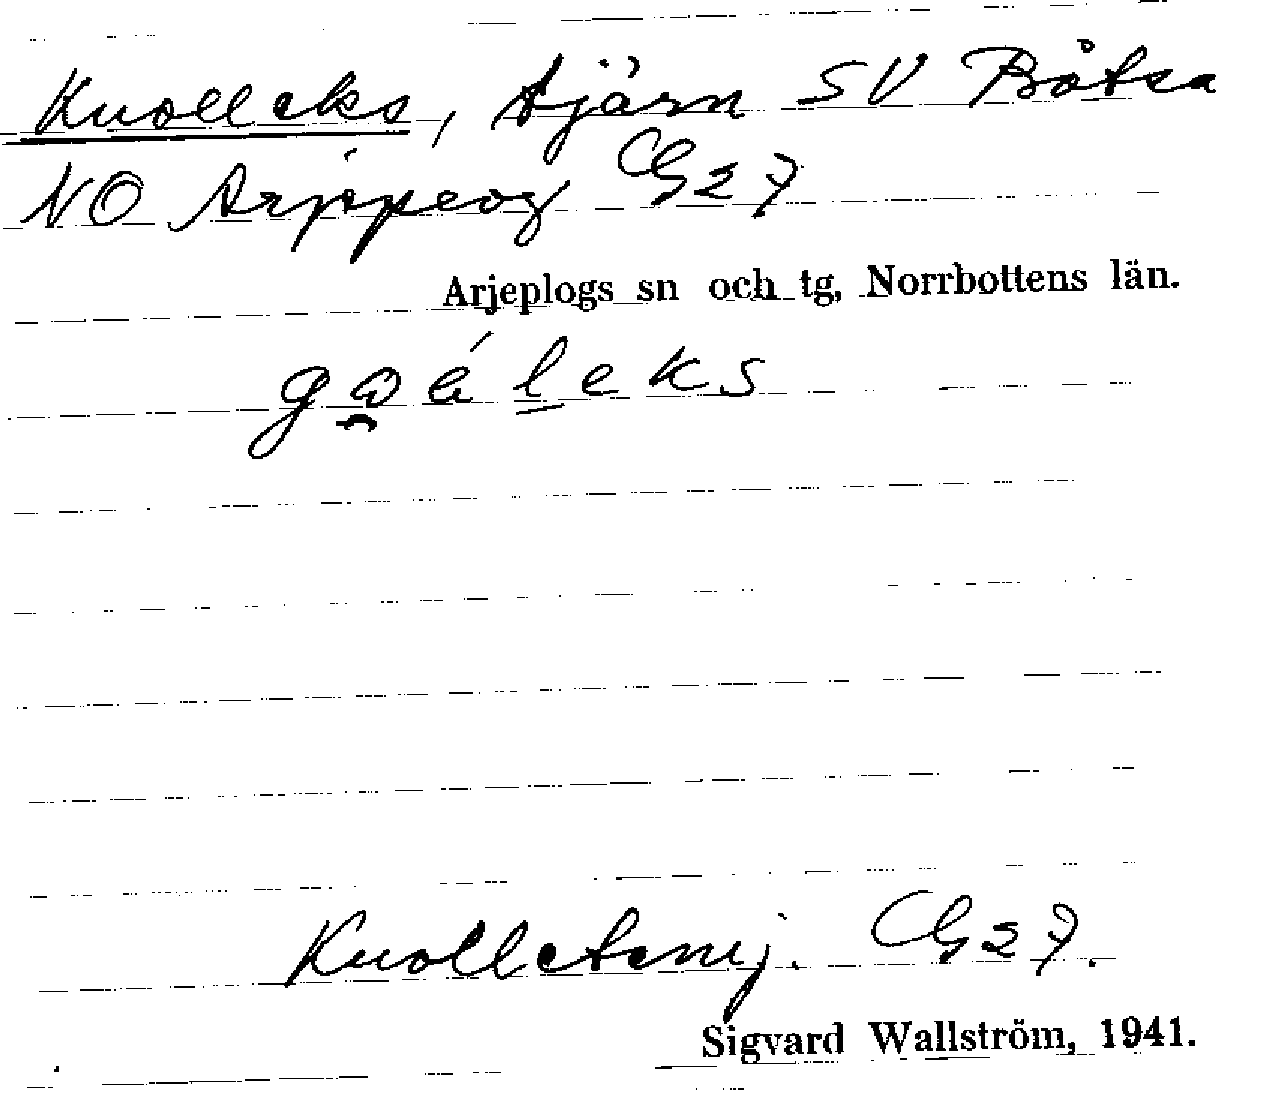 Kuolleks, tjärn SV Båtsa
NO Arjepeog G27
Arjeplogs sn och tg, Norrbottens län.
gọ̑áḻeks
Kuolletenj. G27.
Sigvard Wallström, 1941.